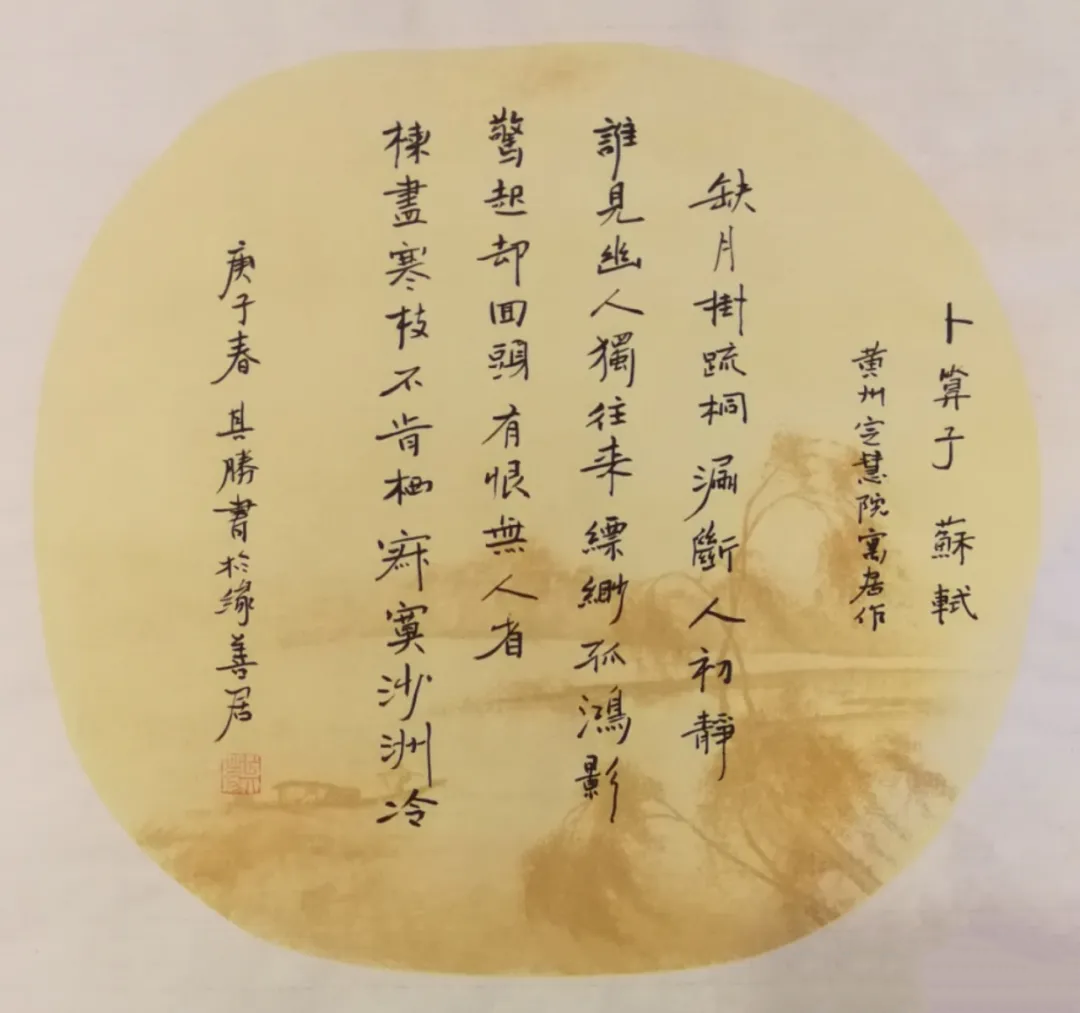 卜算子 蘇軾
黄州定慧院寓居作
缺月掛疏桐 漏斷人初靜
誰見幽人獨往来 縹緲孤鴻影
驚起却回頭 有恨無人省
楝盡寒枝不肯栖 寂寞沙洲冷
庚子春 其勝書於緣善居